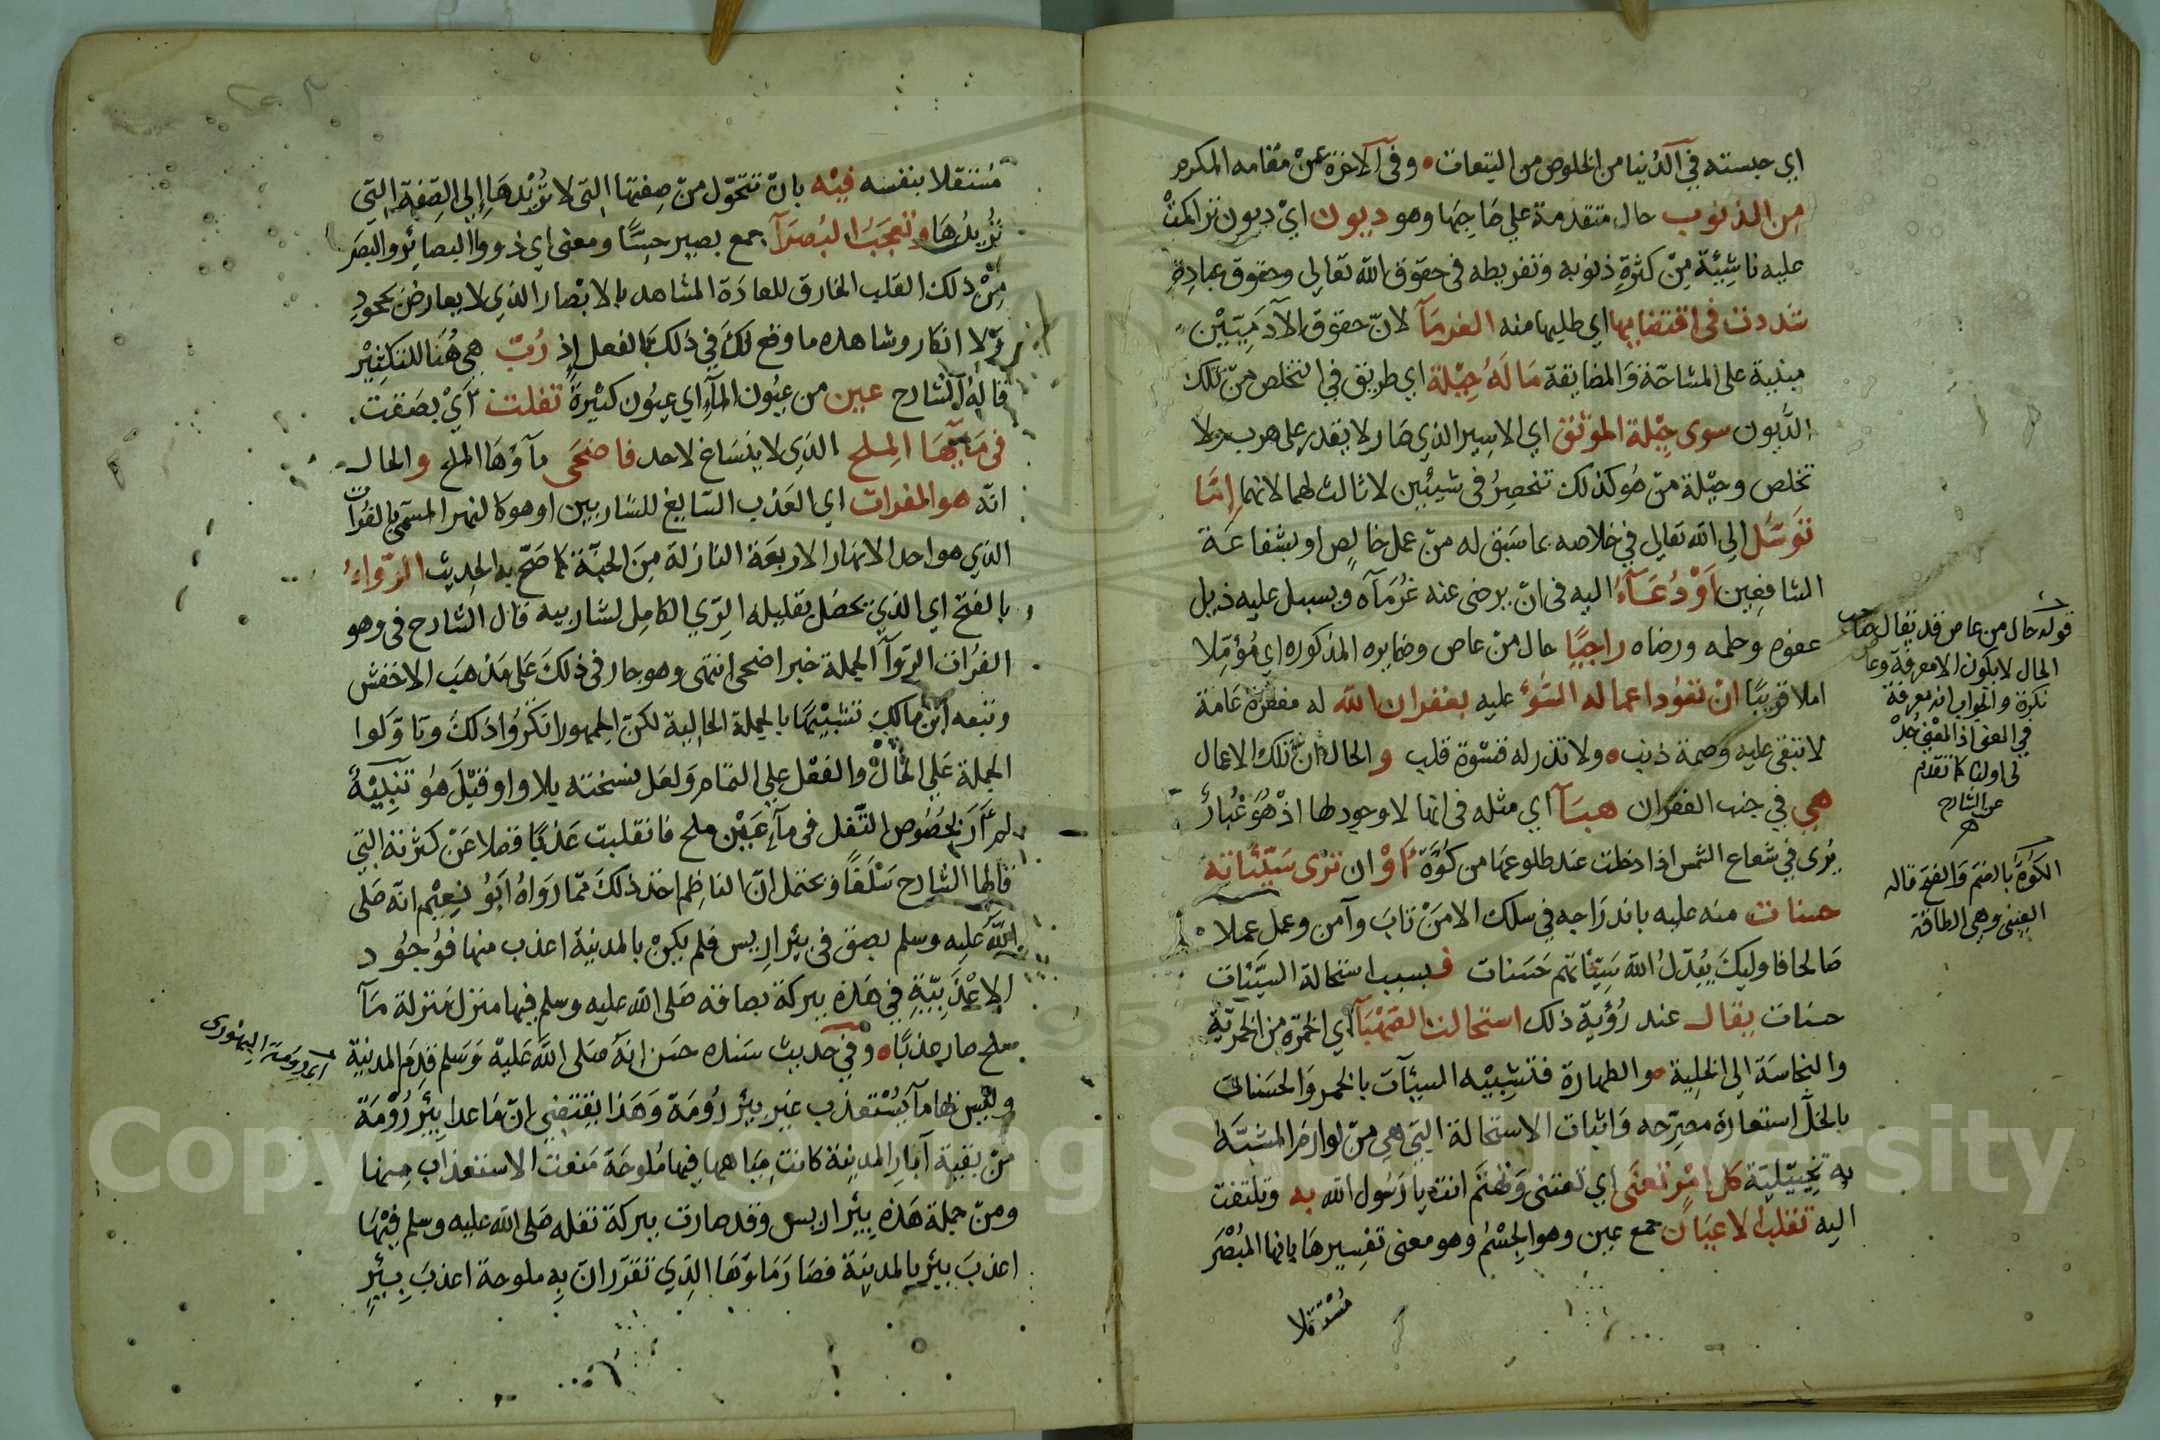 اي حبسته في الدنيا من الخلوص من التبعات وفي الآخرة عن مقامه المكرم
من الذنوب حال متقدمة علي صاحبها وهو ديون اي ديون تراكمت
عليه ناشئة من كثرة ذنوبه وتفريطه في حقوق الله تعالي وحقوق عباده
شددت في اقتضايها اي طلبها منه الغرمآ لان حقوق الآدميين
مبنية على المشاحّة والمضايقة ماله حيلة اي طريق في التخلص من تلك
الديون سوى حيلة الموثق اي الاسير الذي صار لا يقدر على هرب ولا
تخلص وحيلة من هو كذلك تنحصر في شيئين لا ثالث لهما لانهما إما
توسل الي الله تعالي في خلاصه بما سبق له من عمل خالص او بشفاعة
الشافعين او دعآء اليه في ان يرضى عنه غرمآه ويسبل عليه ذيل
عفوه وحلمه ورضاه راجيًا حال من عاص وضايره المذكوره اي مؤملا
املا قريبًا ان تعود اعماله السوء عليه بغفران الله له مغفرة عامة
لا تبقي عليه وصمة ذنب ولا تذر له قسوة قلب والحال ان تلك الاعمال
هي في جنب الغفران هبآ اي مثله في انها لا وجود لها اذ هو غبار
يرى في شعاع الشمس اذا دخلت عند طلوعها من كوة او ان ترى سيئاته
حسنات منه عليه باندراجه في سلك الا من تاب وآمن وعمل عملا
صالحا فاوليك يبدل الله سيئاتهم حسنات فبسبب استحالة السيئات
حسنات يقال عند رؤية ذلك استحالت الصهبآ اي الخمرة من الخمرية
والنجاسة الي الخلية والطهارة فتشبيه السيئآت بالخمر والحسنات
بالخل استعارة مصرحه واثبات الاستحالة التي هي من لوازم المشبه
به تخييلية كل امر تعنى اي تعتنى وتهتم انت يا رسول الله به وتلتفت
اليه تقلب الاعيان جمع عين وهو الجسم وهو معنى تفسيرها بانها المبصر
مستقلا
قوله حال من عاص قد يقال صاحب
الحال لا يكون الا معرفة وعاص
نكرة والجواب انه معرفة
في المعنى
كما تقدم
عن الشارح
الكوة بالضم والفتح قاله
العيني وهي الطاقة
مستقلا بنفسه فيه بان تتحول من صفتها التي لا تريدها إلي الصفة التي
تريدها وتعجب البصرآ جمع بصير حسًّا ومعنى اي ذووا البصائر والبصر
من ذلك القلب الخارق للعادة المشاهد بالابصار الذي لا يعارض بجحود
ولا انكار وشاهده ما وقع لك في ذلك بالفعل إذ رب هي هنا للتكثير
قاله الشارح عين من عيون المآء اي عيون كثيرة تفلت اي بصقت
في مآيها الملح الذي لا ينساغ لاحد فاضحى مآؤها الملح والحال
انه هو الفرات اي العذب السايغ للشاربين او هو كالنهر المسمى بالفرات
الذي هو احد الانهار الاربعة النازلة من الجنة كما صح به الحديث الروآء
بالفتح اي الذي يحصل بقليله الري الكامل لشاربيه قال الشارح في وهو
الفرات الروآ الجملة خبر اضحى انتهى وهو جار في ذلك على مذهب الاخفش
وتبعه ابن مالك تشبيهًا بالجملة الحالية لكن الجمهور انكروا ذلك وتاولوا
الجملة علي الحال والفعل علي التمام ولعل نسخته بلا واو قبل هو تنبيه
لم أر بخصوص التفل في مآء عين ملح فانقلبت عذبًا فضلا عن كثرته التي
قالها الشارح سلفًا ويحتمل ان الناظم اخذ ذلك مما رواه ابو نعيم انه صلى
الله عليه وسلم بصق في بئر اريس فلم يكن بالمدينة اعذب منها فوجود
الاعذبية في هذه ببركة بصاقه صلى الله عليه وسلم فيها منزل منزلة مآ
ملح صار عذبًا وفي حديث سنده حسن انه صلى الله عليه وسلم قدم المدينة
وليس لها مآ يستعذب غير بئر رومة وهذا يقتضي ان ما عدا بئر رومة
من بقية آبار المدينة كانت مياهها فيها ملوحة منعت الاستعذاب منها
ومن جملة هذه بئر اريس وقد صارت ببركة تفله صلى الله عليه وسلم فيها
اعذب بئر بالمدينة فصار مآؤها الذي تقرر ان به ملوحة اعذب بئر